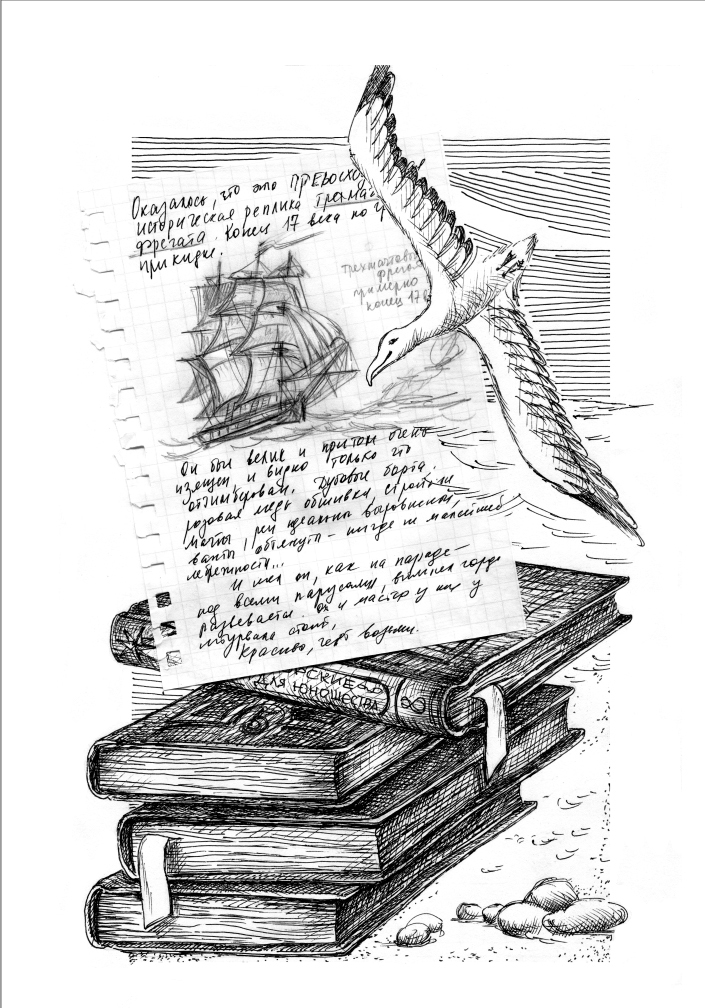 Оказалось, что это ПРЕВОСХО
историческая реплика трехма
фрегата. Конец 17 века по
прикидке.
трехмачтовы
фрегат
примерно
конец 17 в
Он был велик и притом очень
изящен, и видно только что
отдимберован. Дубовые борта,
розовая медь обшивки, стройные
мачты, реи идеально выровнены,
ванты обтянуты – нигде ни малейшей
небрежности...
И шел он, как на параде –
под всеми парусами, вымпел гордо
развевается. Он и мастер у них у
штурвала стоит,
Красиво, черт возьми.
РСКИЕ
ДЛЯ ЮНОШЕСТВА
8